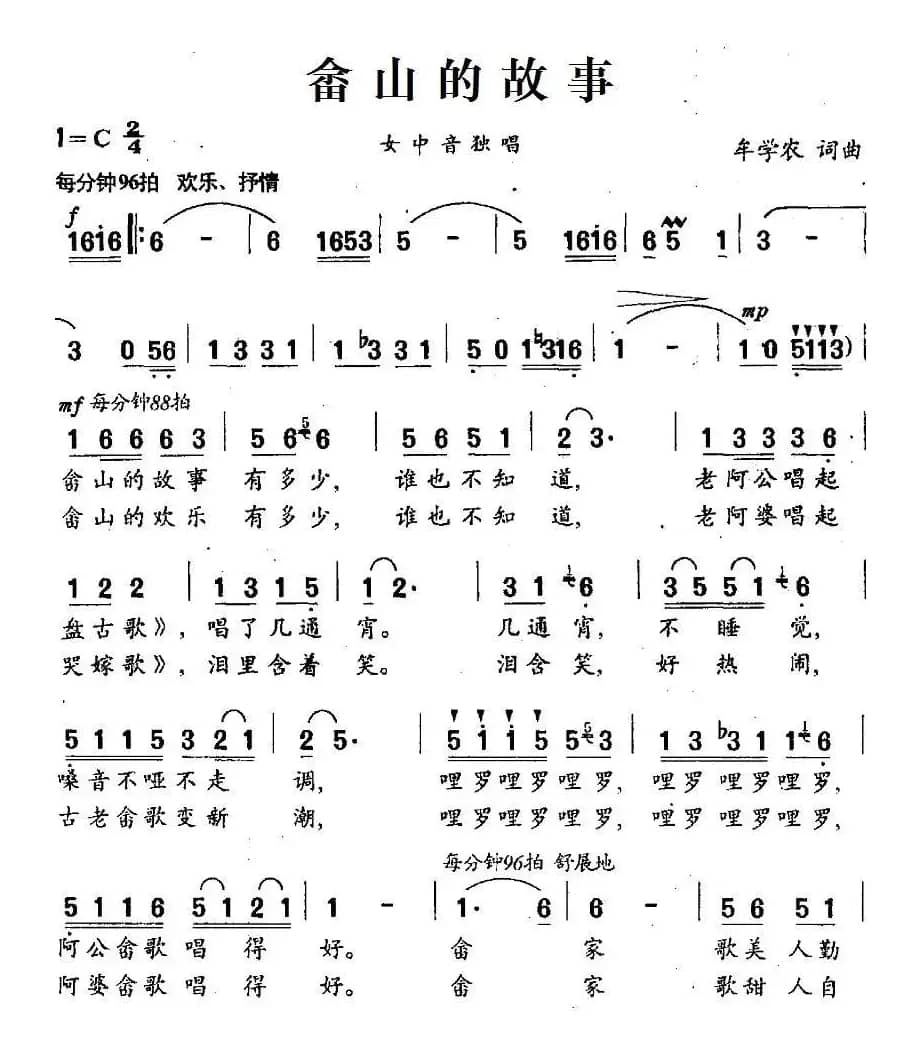 畲山的故事
1=C 2/4
女中音独唱
牟学农 词曲
每分钟96拍 欢乐、抒情
f
1616 6 - 6 1653 5 - 5 1616 6 5 1 3 -
3 0 56 1 3 3 1 1 b3 3 1 5 0 1 ♮316 1 - mp 1 0 5113)
mf 每分钟88拍
1 6 6 6 3 5 6 5 6 5 6 5 1 2 3· 1 3 3 3 6
畲山的故事 有多少, 谁也不知 道, 老阿公唱起
畲山的欢乐 有多少, 谁也不知 道, 老阿婆唱起
1 2 2 1 3 1 5 1 2· 3 1 1 6 3 5 5 1 1 6
盘古歌》, 唱了几通 宵。 几通宵, 不 睡 觉,
哭嫁歌》, 泪里含着 笑。 泪含笑, 好 热 闹,
5 1 1 5 3 2 1 2 5· 5 1 1 5 5 5 3 1 3 b3 1 1 1 6
嗓音不哑不走 调, 哩罗哩罗哩罗, 哩罗哩罗哩罗,
古老畲歌变新 潮, 哩罗哩罗哩罗, 哩罗哩罗哩罗,
每分钟96拍 舒展地
5 1 1 6 5 1 2 1 1 - 1· 6 6 - 5 6 5 1
阿公畲歌 唱 得 好。 畲 家 歌美人勤
阿婆畲歌 唱 得 好。 畲 家 歌甜人自